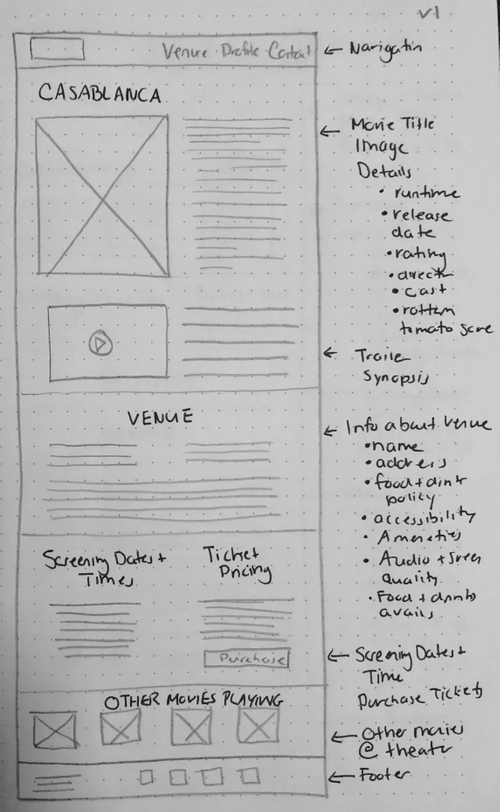 v1
Venue Profile Contact
← Navigatin
CASABLANCA
← Movie Title
Image
Details
• runtime
• release
date
• rating
• director
• cast
• rotten
tomato score
← Trailer
Synopsis
VENUE
← Info about venue
• name
• address
• food + drink
policy
• accessibility
• Amenities
• Audio + Screen
quality
• Food + drinks
avails
Screening Dates +
Times
Ticket
Pricing
Purchase
← Screening Dates +
Time
Purchase Tickets
OTHER MOVIES PLAYING
← Other movies
@ theatr
← Footer